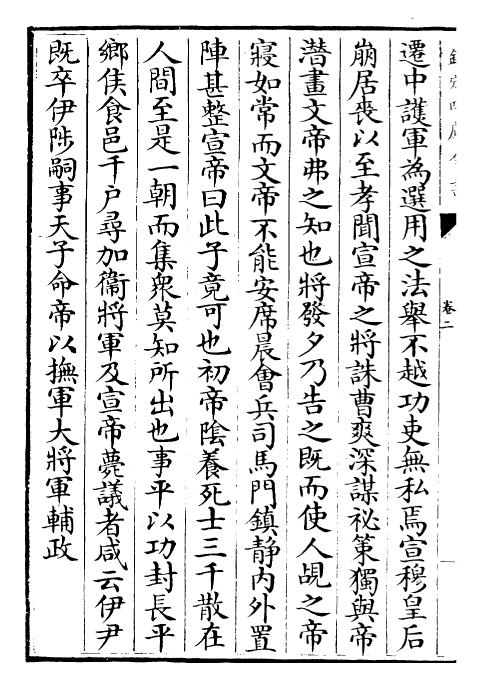 欽定四庫全書
卷二
遷中護軍為選用之法舉不越功吏無私焉宣穆皇后
崩居喪以至孝聞宣帝之將誅曹爽深謀祕策獨與帝
潜畫文帝弗之知也將發夕乃告之既而使人覘之帝
寢如常而文帝不能安席晨會兵司馬門鎮静内外置
陣甚整宣帝曰此子竟可也初帝隂養死士三千散在
人間至是一朝而集衆莫知所出也事平以功封長平
鄉侯食邑千户尋加衞將軍及宣帝薨議者咸云伊尹
既卒伊陟嗣事天子命帝以撫軍大將軍輔政